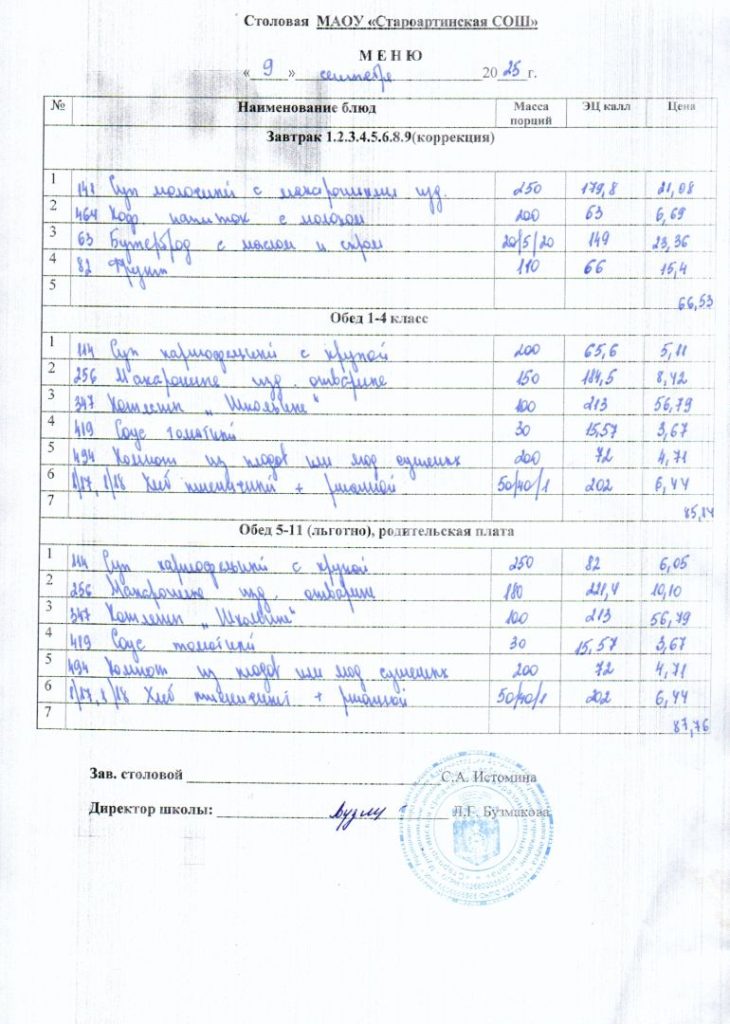 Столовая МАОУ «Староартинская СОШ»
М Е Н Ю
« 9 » сентября 20 25 г.
№ Наименование блюд Масса порций ЭЦ калл Цена
Завтрак 1.2.3.4.5.6.8.9(коррекция)
1 141 Суп молочный с макаронными изд. 250 179,8 21,08
2 464 Коф. напиток с молоком 200 63 6,69
3 63 Бутерброд с маслом и сыром 20/5/20 149 23,36
4 82 Фрукт 110 66 15,4
5 66,53
Обед 1-4 класс
1 114 Суп картофельный с крупой 200 65,6 5,11
2 256 Макаронные изд. отварные 150 184,5 8,42
3 347 Котлеты „Школьные“ 100 213 56,79
4 419 Соус томатный 30 15,57 3,67
5 494 Компот из плодов или яг�од сушеных 200 72 4,71
6 1/17, 1/18 Хлеб пшеничный + ржаной 50/40/1 202 6,44
7 85,14
Обед 5-11 (льготно), родительская плата
1 114 Суп картофельный с крупой 250 82 6,05
2 256 Макаронные изд. отварные 180 221,4 10,10
3 347 Котлеты „Школьные“ 100 213 56,79
4 419 Соус томатный 30 15,57 3,67
5 494 Компот из плодов или ягод сушеных 200 72 4,71
6 1/17, 1/18 Хлеб пшеничный + ржаной 50/40/1 202 6,44
7 87,76
Зав. столовой С.А. Истомина
Директор школы: Л.Г. Бузмакова